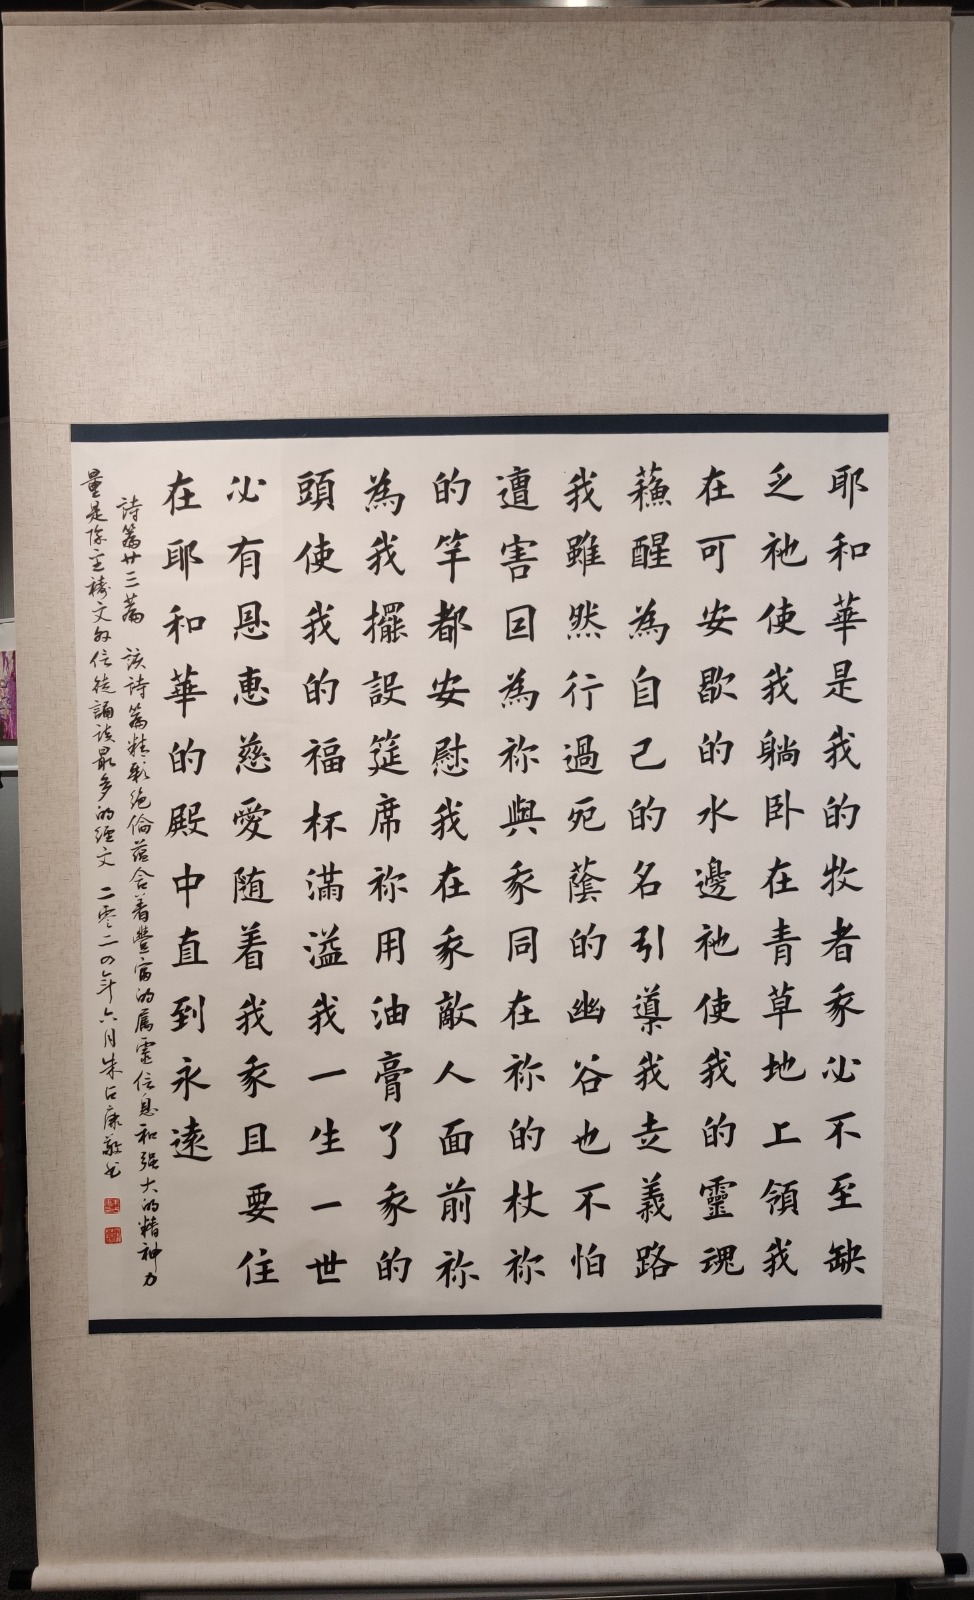 耶和華是我的牧者我必不至缺
乏祂使我躺卧在青草地上領我
在可安歇的水邊祂使我的靈魂
蘓醒為自己的名引導我走義路
我雖然行過死蔭的幽谷也不怕
遭害因為祢與我同在祢的杖祢
的竿都安慰我在我敵人面前祢
為我擺設筵席祢用油膏了我的
頭使我的福杯滿溢我一生一世
必有恩惠慈愛随着我我且要住
在耶和華的殿中直到永遠
詩篇廿三篇 該詩篇精彩絶倫蕴含着豐富的属靈信息和强大的精神力
量是除主禱文外信徒誦读最多的經文 二零二四年六月朱占康敬书